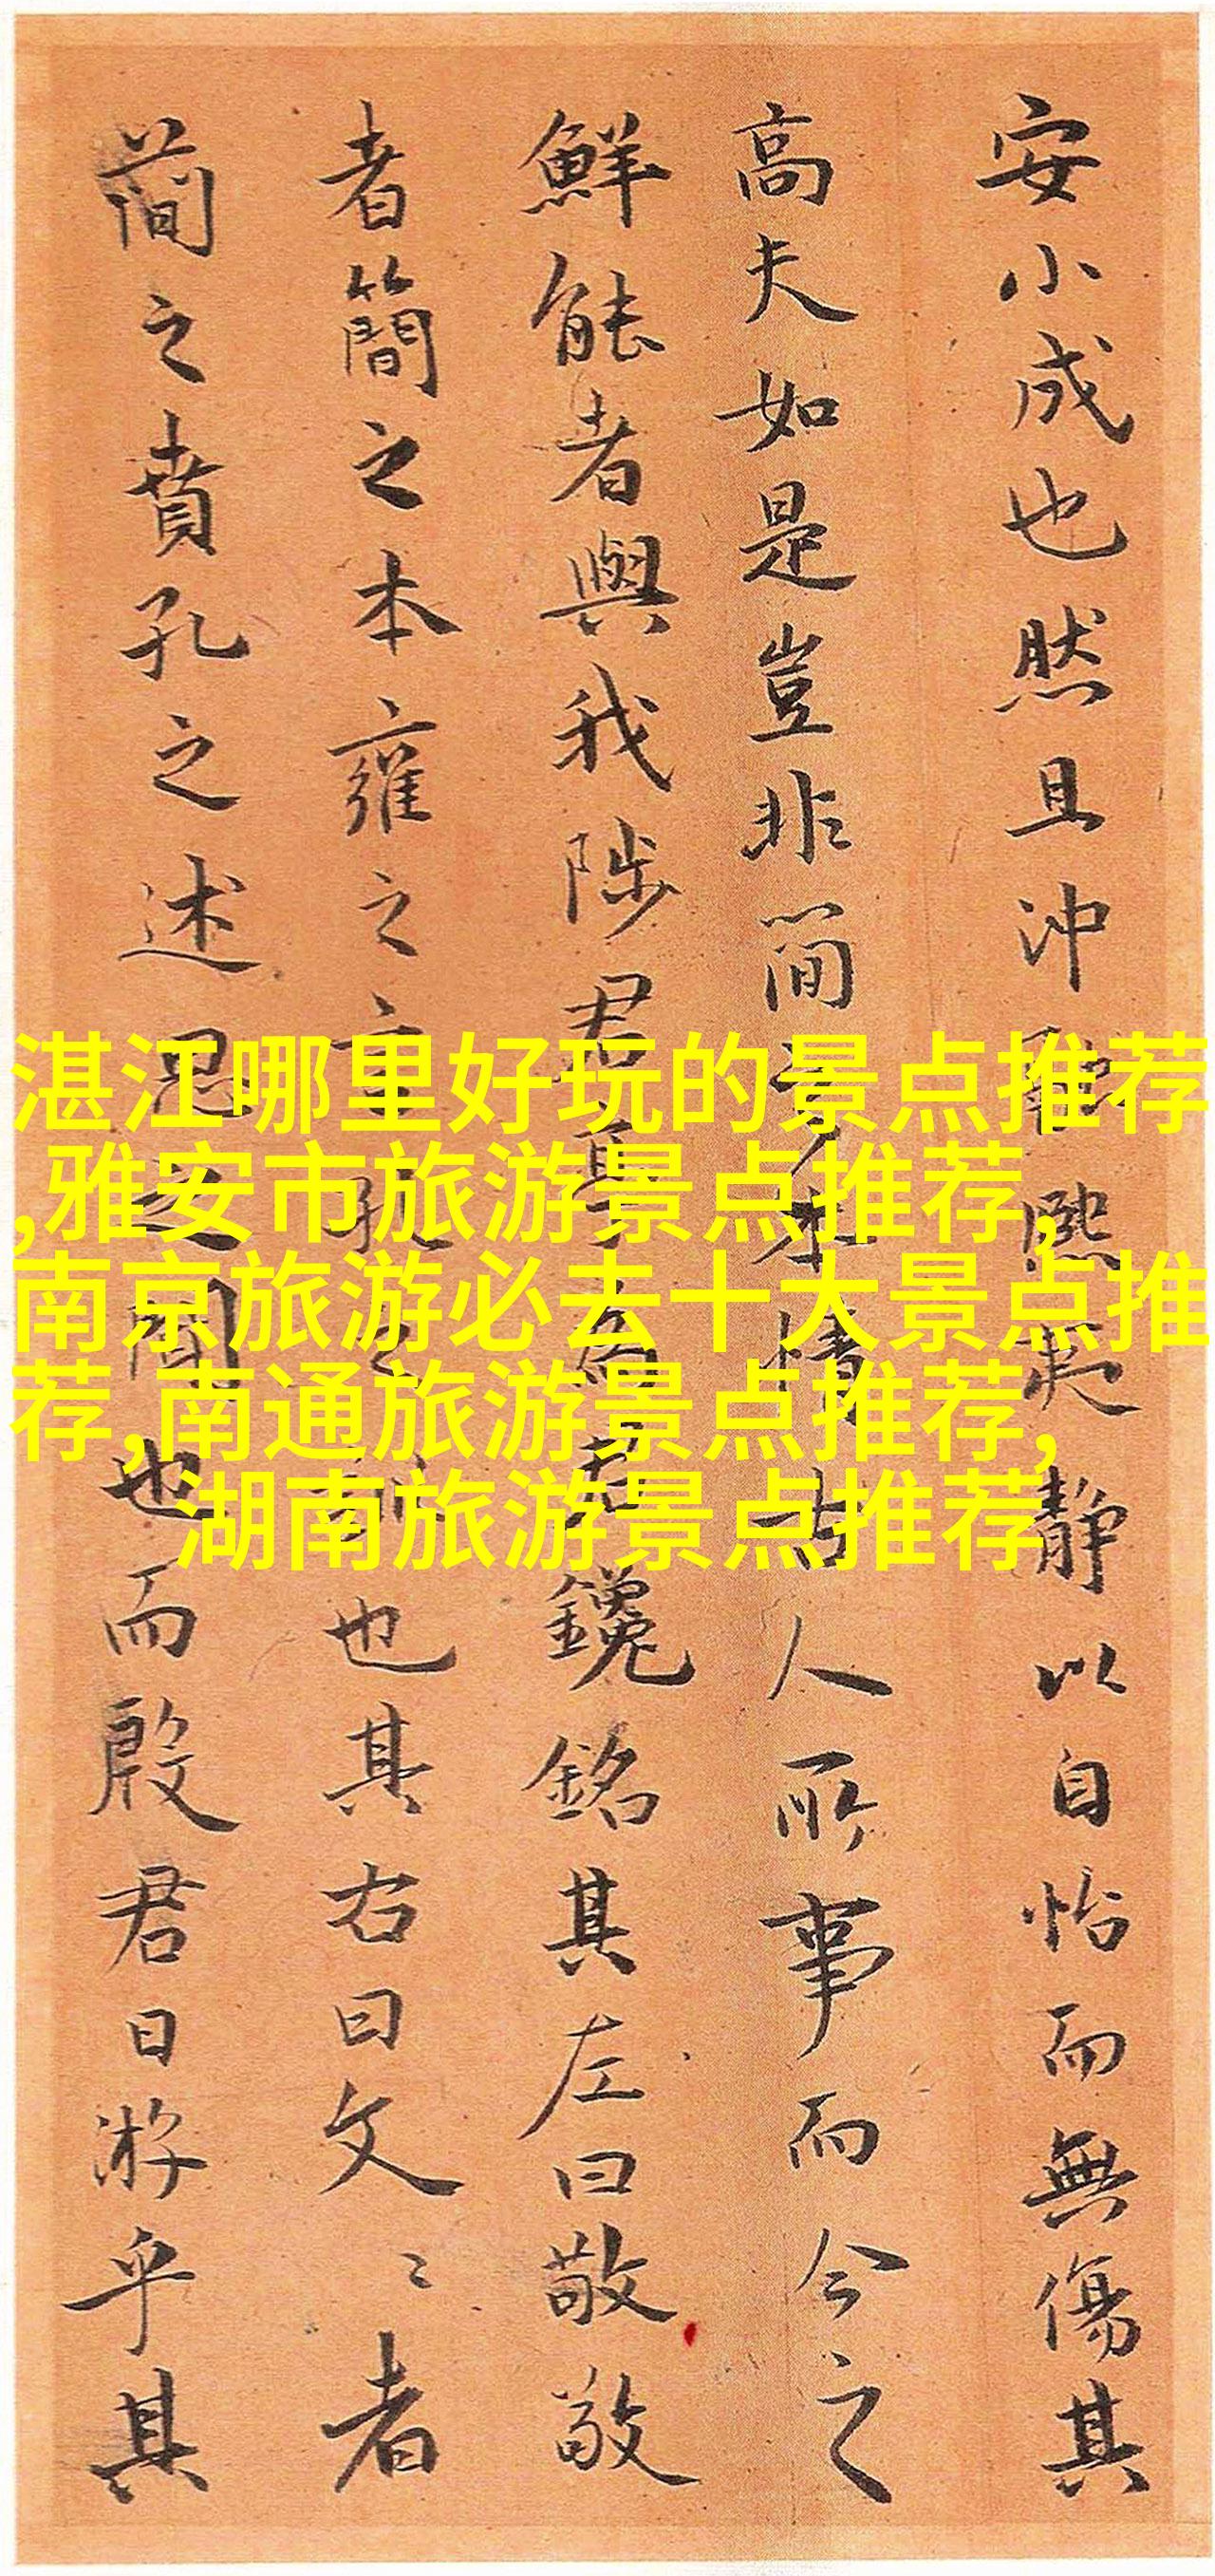 安小成也然且沖融熙夷静以自怡而無傷其
高夫如是豈非簡本情古人所事而今之
鮮能者與我陟君鑱銘其左曰敬敬
者簡之本雍之言也其右曰文〻者
蕳之賁孔之述思之聞也而殷君日游乎其
湛江哪里好玩的景点推荐
,雅安市旅游景点推荐,
南京旅游必去十大景点推
荐,南通旅游景点推荐,
湖南旅游景点推荐